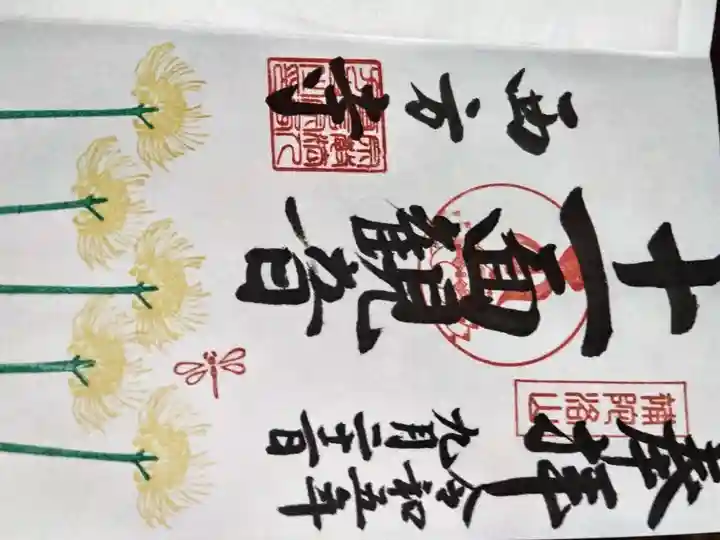 奉拝
補陀洛山
十一面
観音
西方寺
令和五年
九月